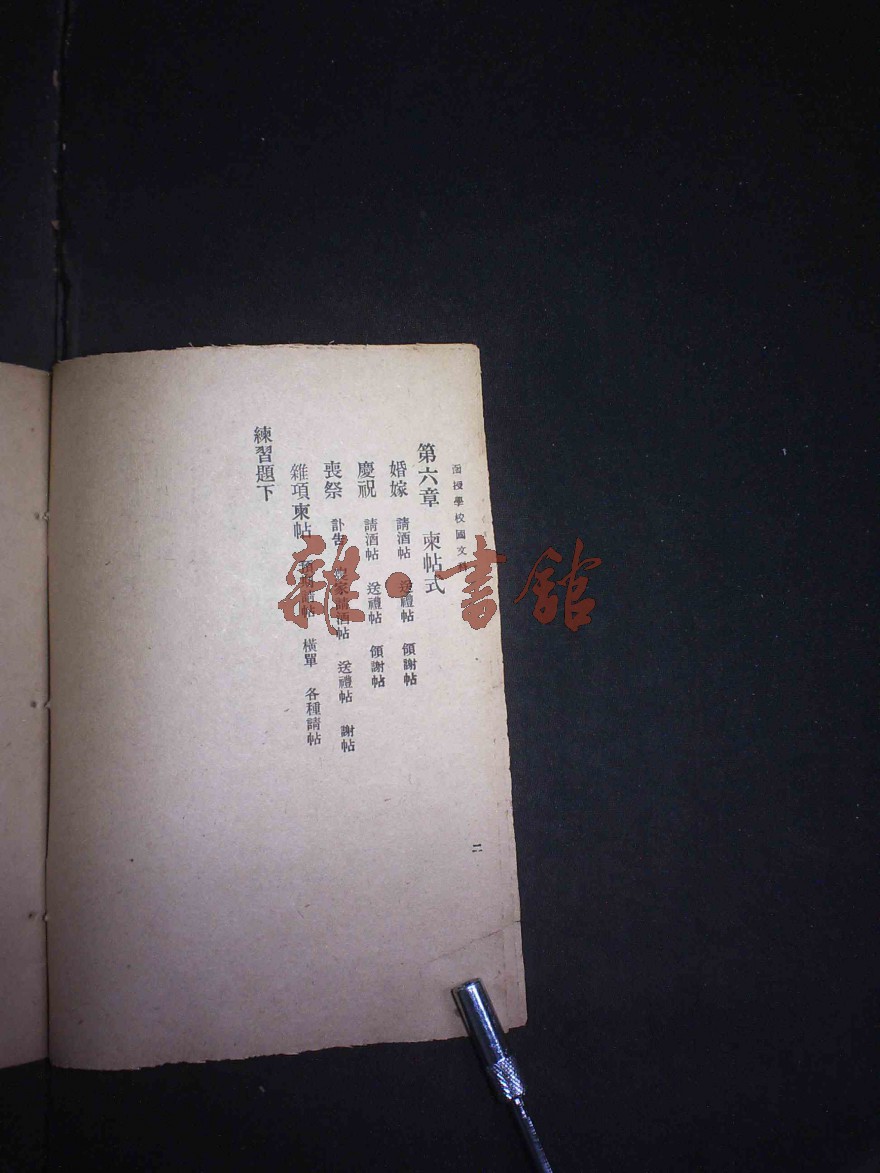 函授學校國文
第六章 柬帖式
婚嫁 請酒帖 送禮帖 領謝帖
慶祝 請酒帖 送禮帖 領謝帖
喪祭 訃告 喪家請酒帖 送禮帖 謝帖
雜項柬帖 請帖 橫單 各種請帖
練習題下
二
雜·書館